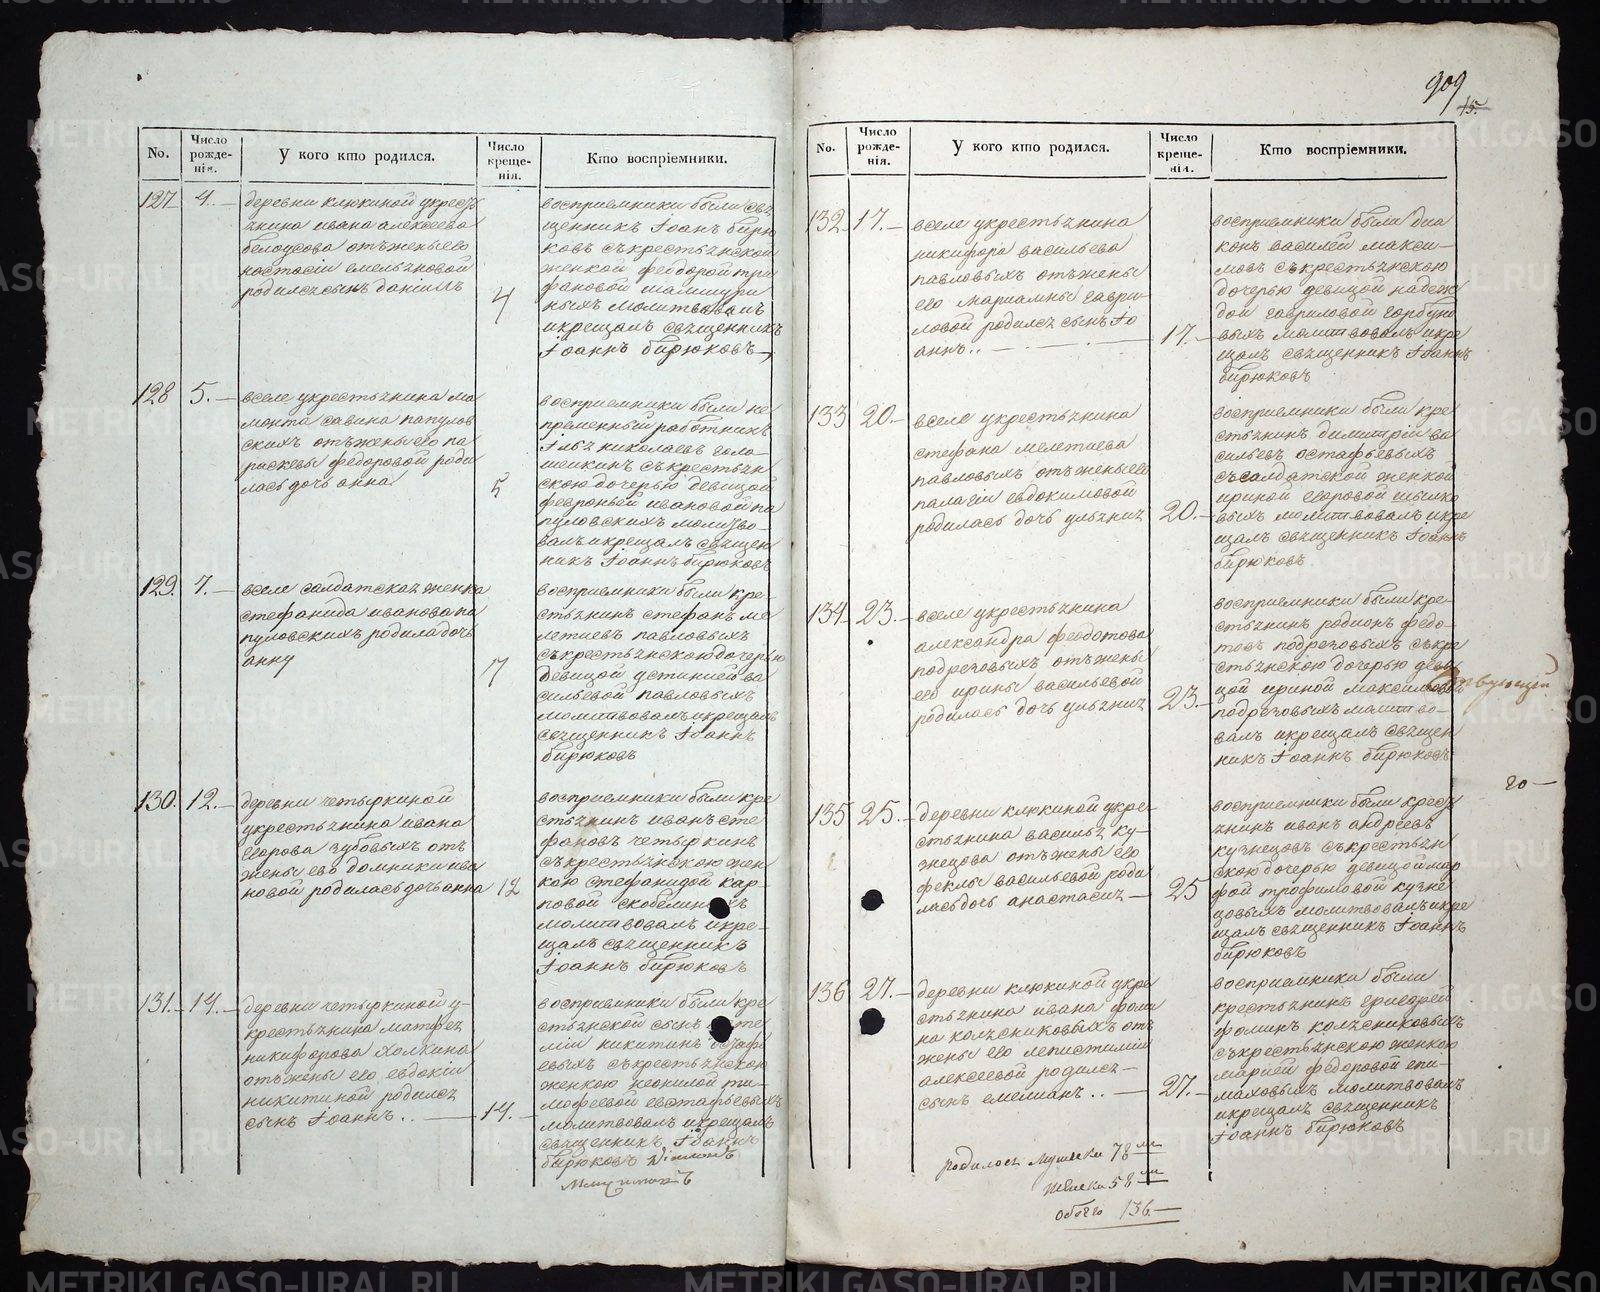 909
15.
No.
Число рожде-нія.
У кого кто родился.
Число креще-нія.
Кто воспріемники.
127
4.
деревни клюкиной укрестъ
янина ивана алексеева
белоусова отъжены его
настасіи емельяновой
родился сынъ даніилъ
4
восприемники были свя
щенникъ Іоанъ бирю
ковъ съкрестьянской
женкой феодорой три
фановой
ныхъ молитвовалъ
икрещалъ священникъ
Іоаннъ бирюковъ
128
5.
вселе укрестьянина ма
монта савина папулов
скихъ отъжены его па
раскевы федоровой роди
лась дочь анна
5
восприемники были не
пременный работникъ
Илья николаевъ голо
шейкинъ съкрестьян
скою дочерью девицой
февроньей ивановой па
пуловскихъ молитво-
валъ икрещалъ священ
никъ Іоаннъ бирюковъ
129.
7.
вселе салдатская женка
стефанида иванова па
пуловскихъ родила дочь
анну
7
восприемники были кре-
стьянинъ стефанъ ме
летиевъ павловыхъ
съкрестьянскою дочерью
девицой устинией ва
сильевой павловыхъ
молитвовалъ икрещалъ
священникъ Іоаннъ
бирюковъ
130.
12.
деревни четыркиной
укрестьянина ивана
егорова зубовыхъ отъ
жены его домники ива
новой родилась дочь анна
12
восприемники были кре
стьянинъ иванъ сте
фановъ четыркинъ
съкрестьянскою жен
кою стефанидой кар-
повой
молитвовалъ икре-
щалъ священникъ
Іоаннъ бирюковъ
131.
14.
деревни четыркиной у-
крестьянина матфея
никифорова холкина
отъжены его евдокіи
никитиной родился
сынъ Іоаннъ..
14.
восприемники были кре
стьянской сынъ
никитинъ
евыхъ съкрестьянскою
женкою неонилой ти-
мофеевой евстафьевыхъ
молитвовалъ икрещалъ
священникъ Іоаннъ
бирюковъ
No.
Число рожде-нія.
У кого кто родился.
Число креще-нія.
Кто воспріемники.
132
17.
вселе укрестьянина
никифора васильева
павловыхъ отъжены
его мариамны гаври-
ловой родился сынъ Іо
аннъ..
17.
восприемники были диа
конъ василей макси-
мовъ съкрестьянскою
дочерью девицой надеж
дой гавриловой горбуно
выхъ молитвовалъ икре
щалъ священникъ Іоаннъ
бирюковъ
133
20.
вселе укрестьянина
стефана мелетиева
павловыхъ отъжены его
палагіи евдокимовой
родилась дочь ульяния
20.
восприемники были кре
стьянинъ димитрій ва
сильевъ остафьевыхъ
съсалдатской женкой
ириной егоровой
выхъ молитвовалъ икре
щалъ священникъ Іоаннъ
бирюковъ
134
23.
вселе укрестьянина
александра феодотова
подрезовыхъ отъжены
его ирины васильевой
родилась дочь ульяния
23.
восприемники были кре-
стьянинъ родионъ федо-
товъ подрезовыхъ съкре
стьянскою дочерью деви
цой ириной максимовой
подрезовыхъ молитво-
валъ икрещалъ священ
никъ Іоаннъ бирюковъ
135
25.
деревни клюкиной укре-
стьянина василья ку-
знецова отъжены его
феклы васильевой роди
лась дочь анастасия
25
восприемники были кресть
янинъ иванъ андреевъ
кузнецовъ съкрестьян
скою дочерью девицой мар
фой трофимовой кузне
цовыхъ молитвовалъ икре
щалъ священникъ Іоаннъ
бирюковъ
136
27.
деревни клюкиной укре
стьянина ивана фоми
на колясниковыхъ отъ
жены его лепистимии
алексеевой родился
сынъ емелианъ..
27.
восприемники были
крестьянинъ григорей
фоминъ колясниковыхъ
съкрестьянскою женкою
марией федоровой епи-
маховыхъ молитвовалъ
икрещалъ священникъ
Іоаннъ бирюковъ
родилось мужеска 78
женска 58
обоего 136
METRIKI.GASO-URAL.RU